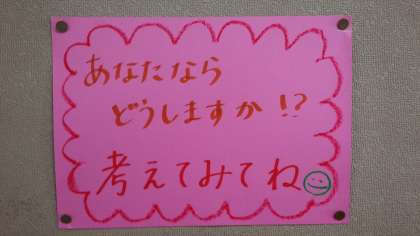 あなたなら
どうしますか!?
考えてみてね